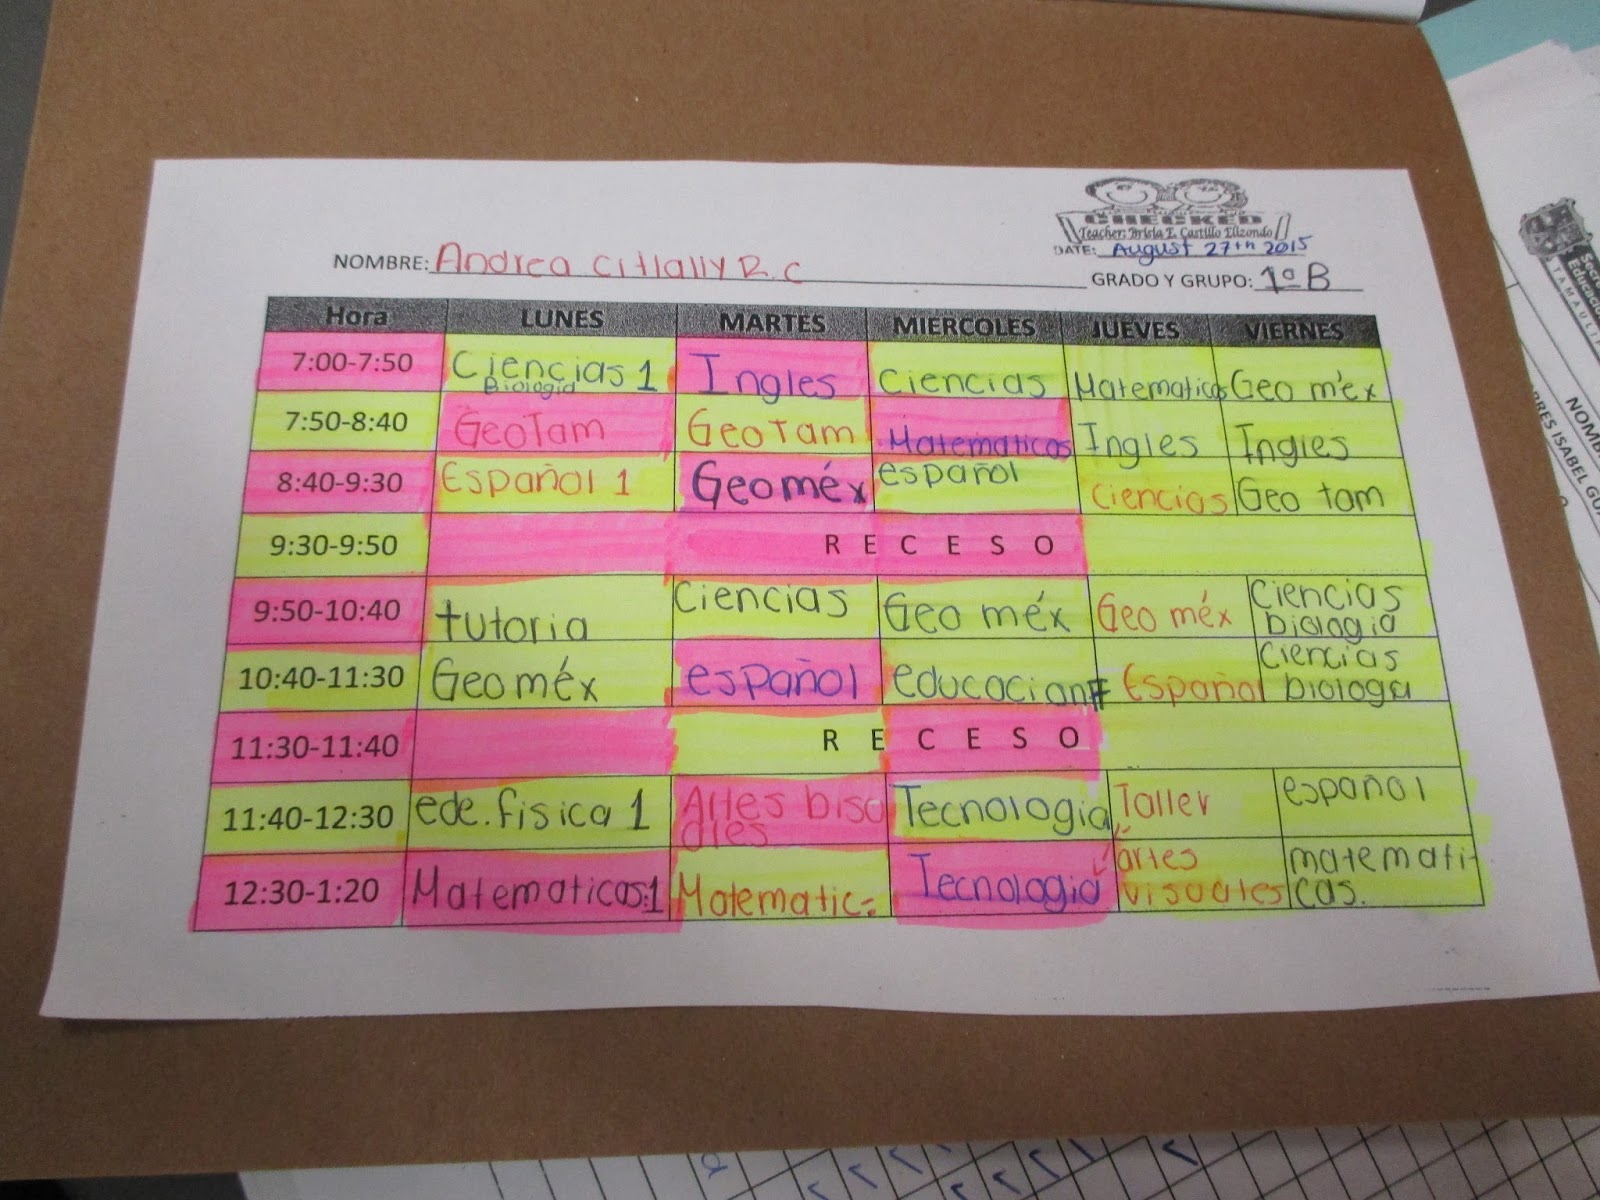 CHECKED
Teacher: Brisia E. Castillo Elizondo
DATE: August 27th 2015
NOMBRE: Andrea Citlally R. C
GRADO Y GRUPO: 1º B
Hora LUNES MARTES MIERCOLES JUEVES VIERNES
7:00-7:50 Ciencias 1 Biologia Ingles Ciencias Matematicas Geo méx
7:50-8:40 GeoTam GeoTam Matematicas Ingles Ingles
8:40-9:30 Español 1 Geoméx español Ciencias Geo tam
9:30-9:50 R E C E S O
9:50-10:40 tutoria Ciencias Geo méx Geo méx Ciencias biologia
10:40-11:30 Geoméx español educacion F Español Ciencias biologa
11:30-11:40 R E C E S O
11:40-12:30 ede.fisica 1 Artes bisuales Tecnologia Taller español
12:30-1:20 Matematicas:1 Matematic- Tecnologia artes visuales matemati-cas.
TAMAULI
NOMB
RES ISABEL GU